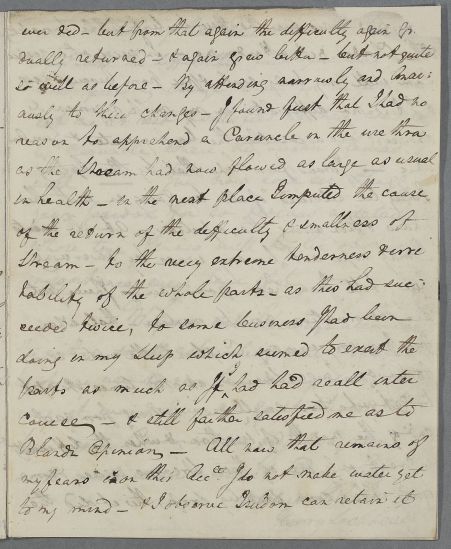 ever did - but from that again the difficulty again gr-
dually returned - & again grew better - but not quite
so well as before - By attending narrowly and anxi-
ously to these changes - I found first that I had no
reason to apprehend a Caruncle in the urethra
as the Stream had now flowed as large as usual
in health - in the next place I imputed the cause
of the return of the difficulty & smallness of
Stream - to the very extreme tenderness & irri
tability of the whole parts - as this had suc-
ceeded twice, to some business I had been
doing in my sleep which seemed to exert the
parts as much as if I had had reall inter
course - & still farther satisfied me as to
Opinion - All now that remains of
my fears is on this Acct. I do not make water yet
to my mind - & I observe I seldom can retain it